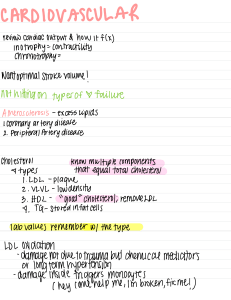 CARDIOVASCULAR
review cardiac output & how it f(x)
inotrophy = contractility
chronotrophy =
Want optimal stroke volume!
Not hitting on types of ♡ failure
Atherosclerosis - excess lipids
1. coronary artery disease
2. Peripheral Artery disease
cholesterol
know multiple components
that equal total cholesterol
4 types
1. LDL - plaque
2. VLVL - low density
3. HDL - "good" cholesterol; remove LDL
4. TG - stored in fat cells
lab values remember w/ the type
LDL oxidation
- damage not due to trauma but chemical mediators
or long term hypertension
- damage inside triggers monocytes
(hey come help me, im broken, fix me!)